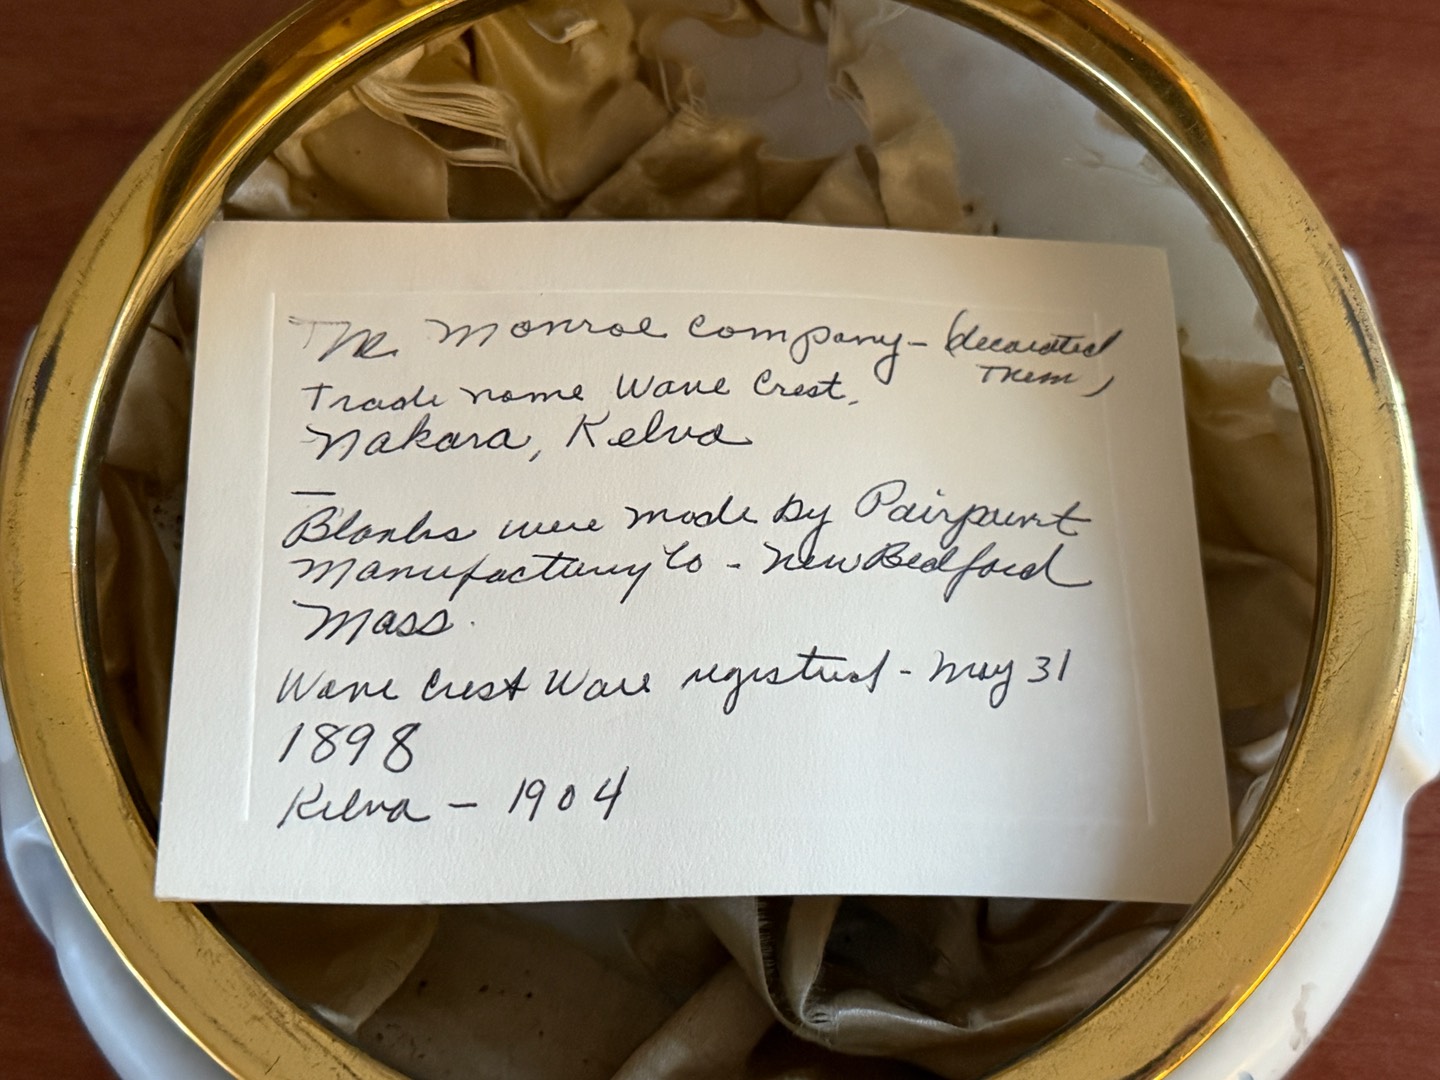 The Monroe Company - (decorated
Them)
Trade name Wave Crest,
Nakara, Kelva
—
Blanks were made by Pairpoint
Manufactury Co - New Bedford
Mass.
Wave Crest Ware registred - May 31
1898
Kelva - 1904